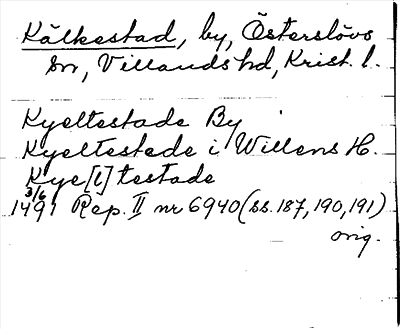 Kälkestad, by, Österslövs
sn, Villands hd, Krist. l.
Kyeltestade By
Kyeltestede i Willens H.
Kye[l]testade
3/6
1491 Rep. II nr 6940 (ss. 187, 190, 191)
orig.